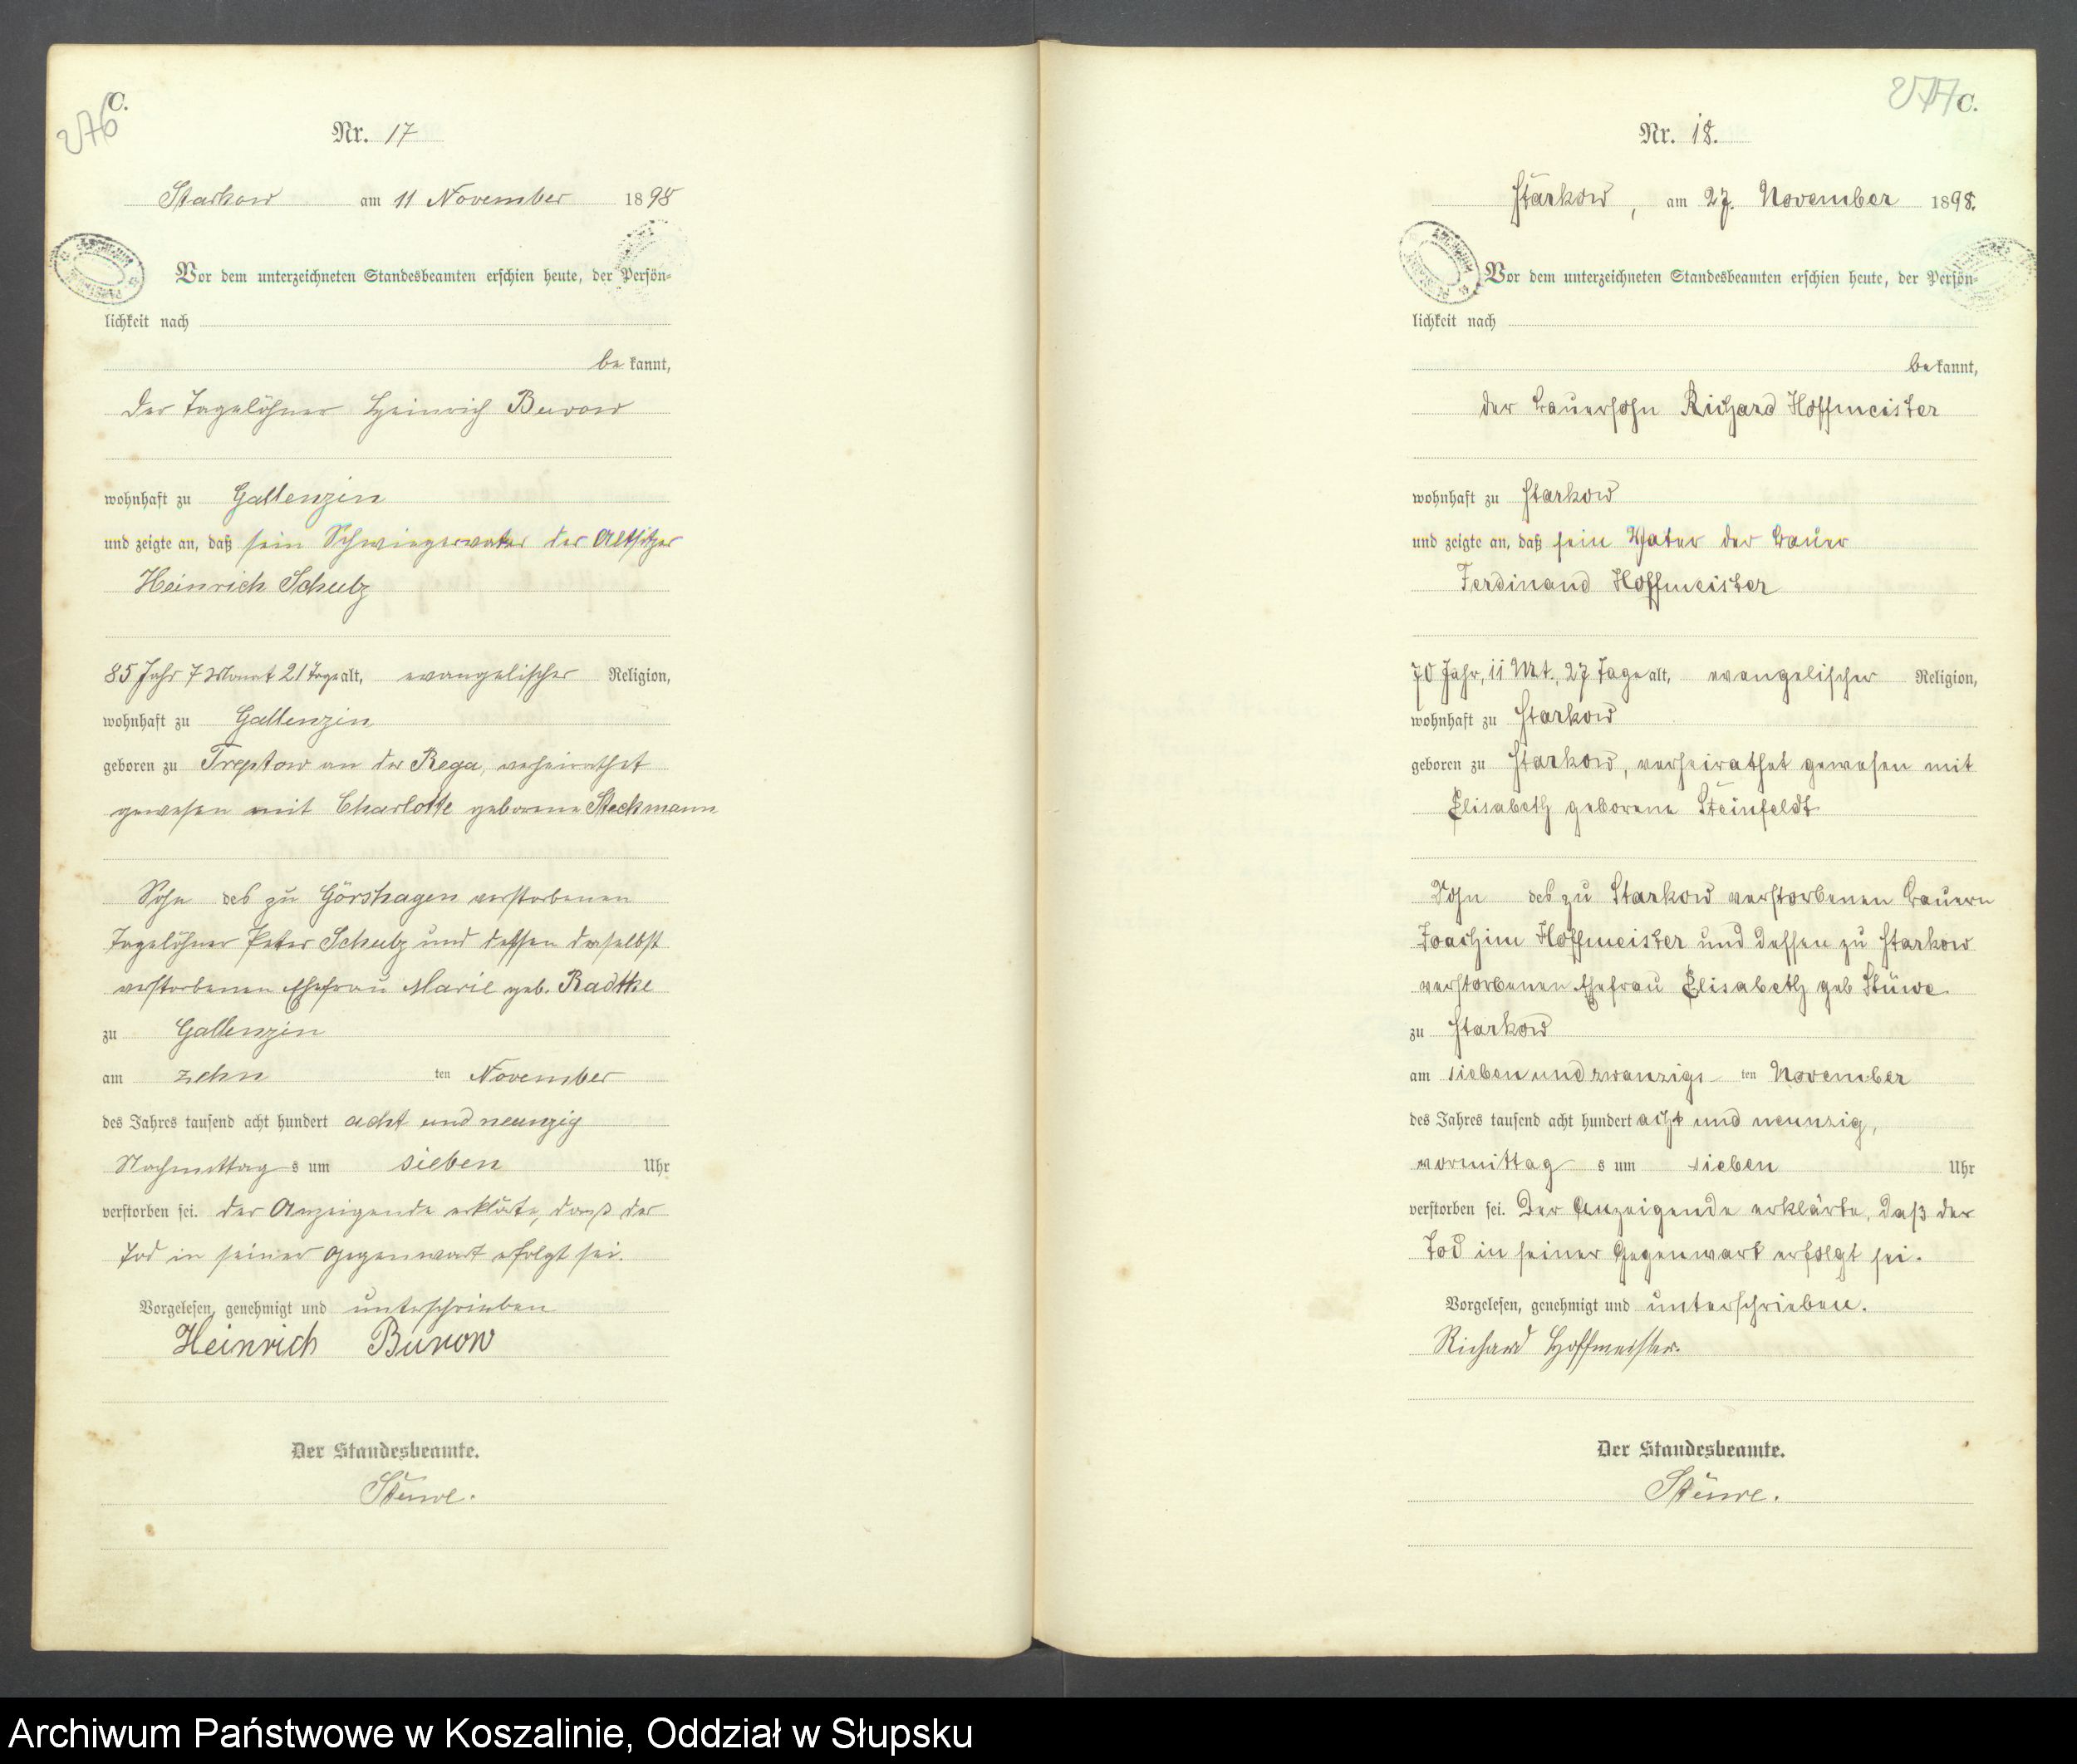 C.
276
Nr. 17
Starkow am 11 November 1898
Vor dem unterzeichneten Standesbeamten erschien heute, der Persön-
lichkeit nach
be kannt,
der Tagelöhner Heinrich Burow
wohnhaft zu Gallenzin
und zeigte an, daß sein Schwiegervater der Altsitzer
Heinrich Schulz
85 Jahr 7 Monat 21 Tage alt, evangelischer Religion,
wohnhaft zu Gallenzin
geboren zu Treptow an der Rega, verheirathet
gewesen mit Charlotte geborene Steckmann
Sohn des zu Görshagen verstorbenen
Tagelöhner Peter Schulz und dessen daselbst
verstorbenen Ehefrau Marie geb. Radtke
zu Gallenzin
am zehn ten November
des Jahres tausend acht hundert acht und neunzig
Nachmittag s um sieben Uhr
verstorben sei. der Anzeigende erklärte, dass der
Tod in seiner Gegenwart erfolgt sei.
Vorgelesen, genehmigt und unterschrieben
Heinrich Burow
Der Standesbeamte.
Stüwe.
277
C.
Nr. 18.
Starkow, am 27. November 1898.
Vor dem unterzeichneten Standesbeamten erschien heute, der Persön-
lichkeit nach
be kannt,
der Bauersohn Richard Hoffmeister
wohnhaft zu Starkow
und zeigte an, daß sein Vater der Bauer
Ferdinand Hoffmeister
70 Jahr, 11 Mt., 27 Tage alt, evangelischer Religion,
wohnhaft zu Starkow
geboren zu Starkow, verheirathet gewesen mit
Elisabeth geborene Steinfeldt
Sohn des zu Starkow verstorbenen Bauern
Joachim Hoffmeister und dessen zu Starkow
verstorbenen Ehefrau Elisabeth geb Stüwe
zu Starkow
am siebenundzwanzigs ten November
des Jahres tausend acht hundert acht und neunzig,
vormittag s um sieben Uhr
verstorben sei. Der Anzeigende erklärte, daß der
Tod in seiner Gegenwart erfolgt sei.
Vorgelesen, genehmigt und unterschrieben.
Richard Hoffmeister.
Der Standesbeamte.
Stüwe.
Archiwum Państwowe w Koszalinie, Oddział w Słupsku